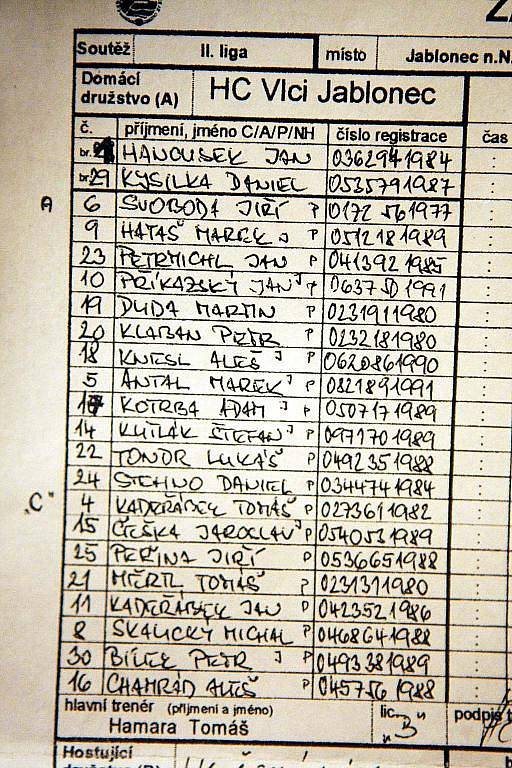 Soutěž II. liga místo Jablonec n.N.
Domácí družstvo (A) HC Vlci Jablonec
č. příjmení, jméno C/A/P/NH číslo registrace čas
br. HANOUSEK JAN 0362941984
br. 29 KYSILKA DANIEL 0535791987
A 6 SVOBODA JIŘÍ P 0172561977
9 HATAŠ MAREK J P 0512181989
23 PETRMICHL JAN P 0413921985
10 PŘÍKAZSKÝ JAN J P 0637501991
19 DUDA MARTIN P 0231911980
20 KLABAN PETR P 0232181980
18 KNESL ALEŠ J P 0620861990
5 ANTAL MAREK J P 0821891991
17 KOTRBA ADAM J P 0507171989
14 KUTLÁK ŠTEFAN J P 0971701989
22 TONDR LUKÁŠ P 0492351988
24 STEHNO DANIEL P 0344741984
„C" 4 KADEŘÁBEK TOMÁŠ P 0273611982
15 ČEŠKA JAROSLAV J P 0540531989
25 PEŘINA JIŘÍ P 0536651988
21 MĚRTL TOMÁŠ P 0231311980
11 KADEŘÁBEK JAN P 0423521986
8 SKALICKÝ MICHAL P 0468641988
30 BÍLEK PETR J P 0493381989
16 CHAMRÁD ALEŠ P 0457561988
hlavní trenér (příjmení a jméno) lic. „B" podpis
Hamara Tomáš
Hostující